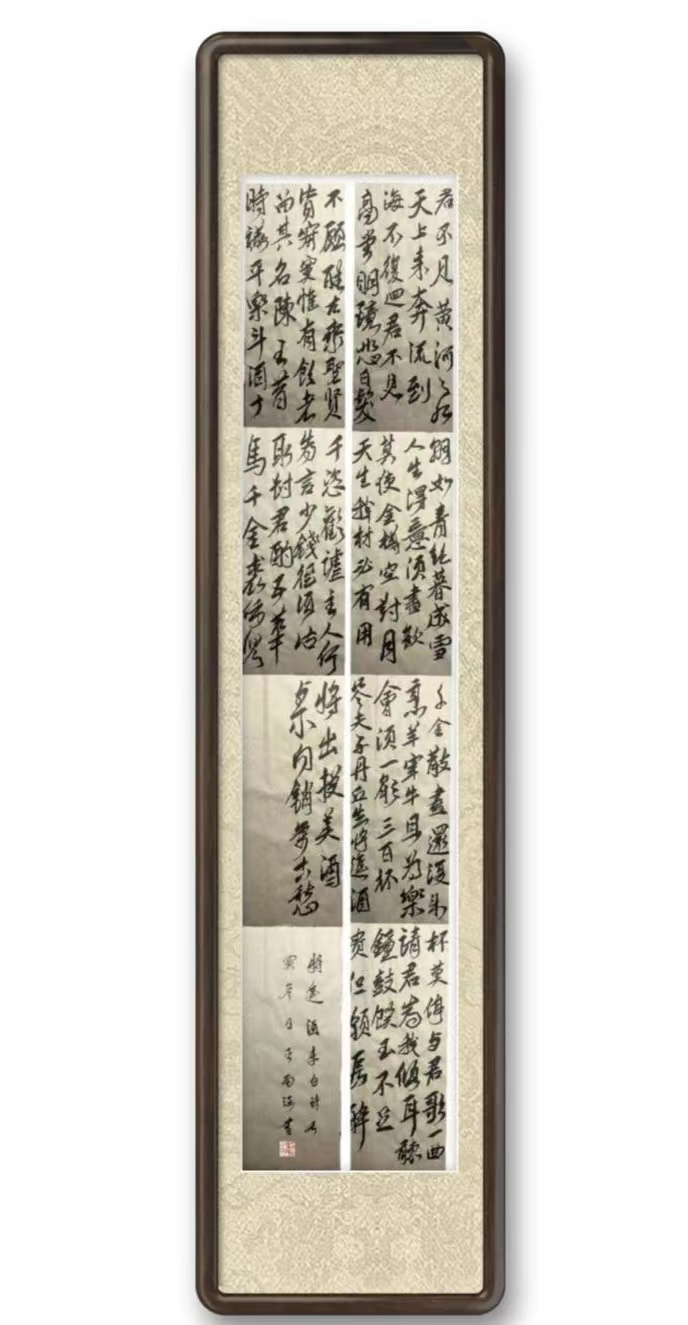 君不见黄河之水
天上来奔流到
海不復迴君不見
高堂明鏡悲白髮
朝如青絲暮成雪
人生得意須盡歡
莫使金樽空對月
天生我材必有用
千金散盡還復来
烹羊宰牛且為樂
會須一飲三百杯
岑夫子丹丘生將進酒
杯莫停与君歌一曲
請君為我傾耳聽
鐘鼓饌玉不足
貴但願長醉
不願醒古來聖賢
皆寂寞惟有飲者
留其名陳王昔
時讌平樂斗酒十
千恣歡謔主人何
為言少錢徑須沽
取對君酌五花
馬千金裘呼兒
將出換美酒
与尔同銷萬古愁
將進酒李白詩